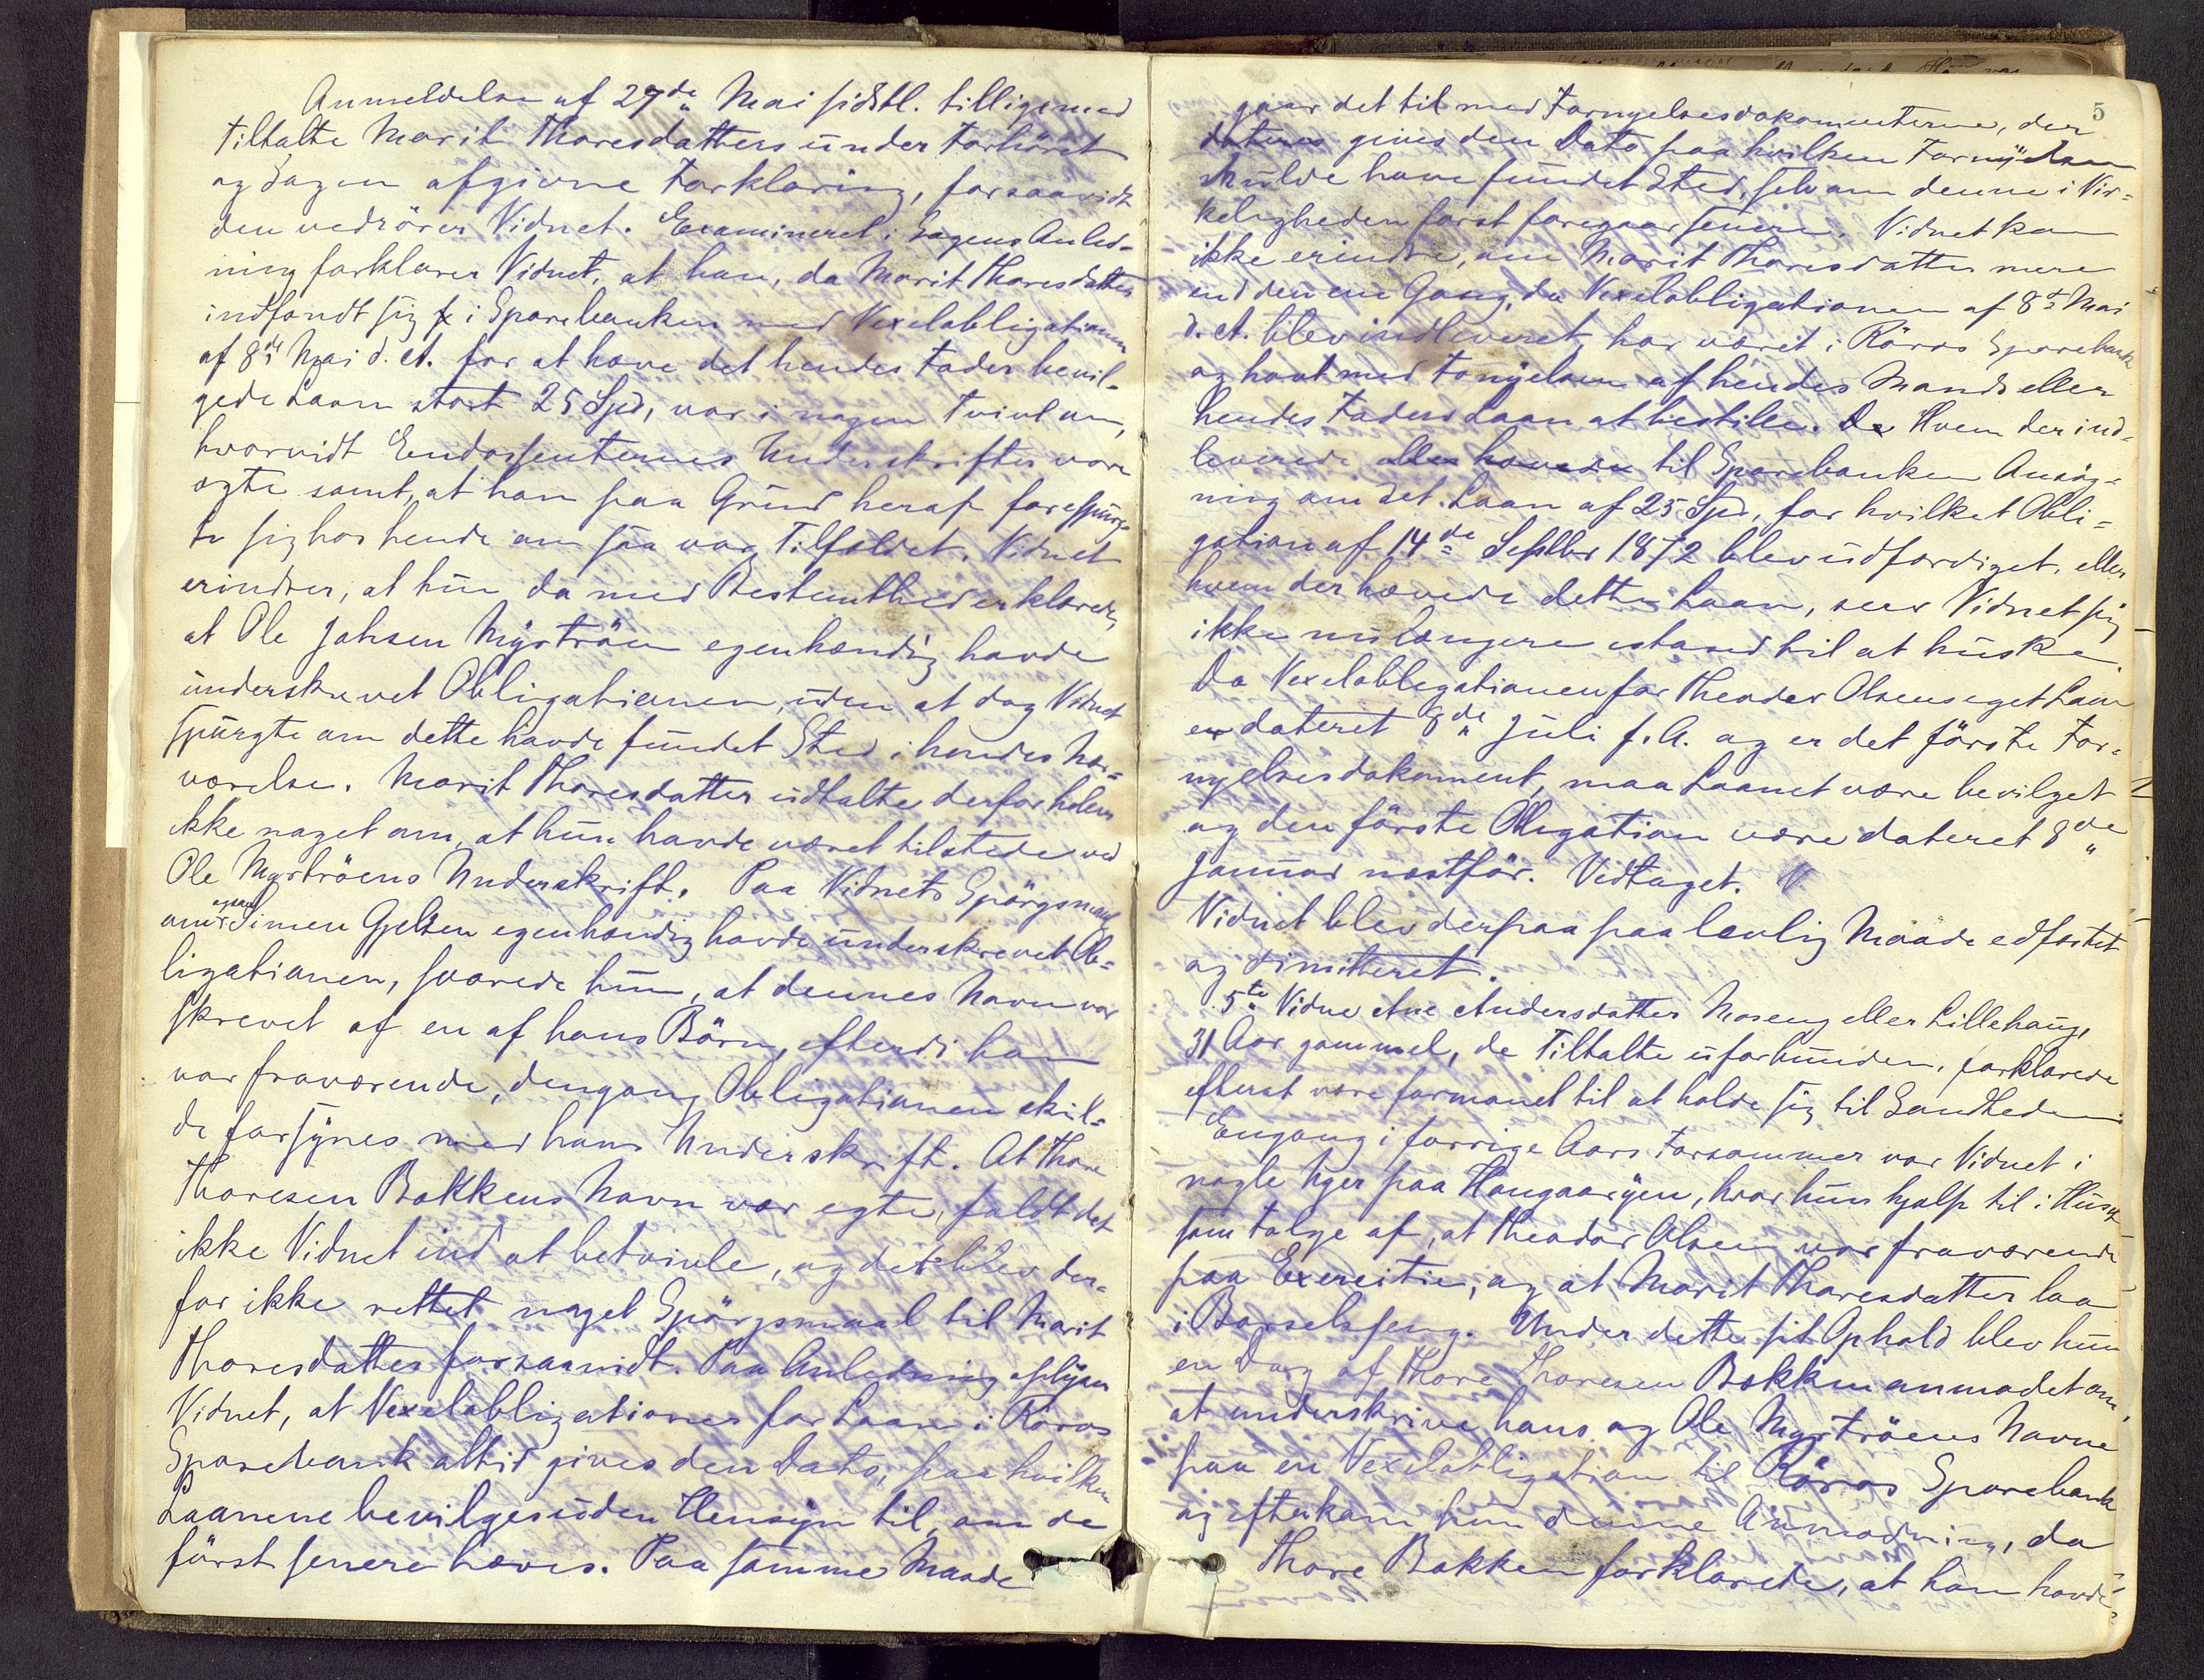 Anmeldelse af 27de Mai sidstl. tilligemed
Tiltalte Marit Thoresdatters under Forhöret
og Sagen afgivne Forklaring, forsaavidt
den vedrörer Vidnet. Examineret i Sagens Anled-
ning forklarer Vidnet, at han, da Marit Thoresdatter
indfandt sig i Sparebanken med Vexelobligationen
af 8de Mai d. A. for at hæve det hendes Fader bevil-
gede Laan stort 25 Spd, var i nogen Tvivl om,
hvorvidt Endossenternes Underskrifter vare
ægte samt, at han paa Grund heraf forespurg-
te sig hos hende om saa var Tilfældet. Vidnet
erindrer, at hun da med Bestemthed erklærede,
at Ole Johsen Myrtröen egenhændig havde
underskrevet Obligationen, uden at dog Vidnet
spurgte om dette havde fundet Sted i hendes Nær-
værelse. Marit Thoresdatter udtalte derfor heller
ikke noget om, at hun havde været tilstede ved
Ole Myrtröens Underskrift. Paa Vidnets Spörgsmaal
om ogsaa Simen Gjelten egenhændig havde underskrevet Ob-
ligationen, svarede hun, at dennes Navn var
skrevet af en af hans Börn, efterdi han
var fraværende, dengang Obligationen skul-
de forsynes med hans Underskrift. At Thore
Thoresen Bakkens Navn var egte, faldt det
ikke Vidnet ind at betvivle, og det blev der-
for ikke rettet noget Spörgsmaal til Marit
Thoresdatter forsaavidt. Paa Anledning oplyser
Vidnet, at Vexelobligationer for Laan i Röros
Sparebank altid gives den Dato, paa hvilken
Laanene bevilges uden Hensyn til, om de
först senere hæves. Paa samme Maade
5
gaar det til med Fornyelsesdokumenterne, der
dateres gives den Dato paa hvilken Fornyelsen
skulde have fundet Sted, selv om denne i Vir-
keligheden först foregaar senere. Vidnet kan
ikke erindre, om Marit Thoresdatter mere
end den ene Gang, da Vexelobligationen af 8de Mai
d. A. blev indleveret, har været i Röros Sparebank
og havt med Fornyelsen af hendes Mands eller
hendes Faders Laan at bestille. De Hvem der ind-
leverede eller hævede til Sparebanken Ansög-
ning om det Laan af 25 Spd, for hvilket Obli-
gation af 14de Septbr 1872 blev udfærdiget, eller
hvem der hævede dette Laan, seer Vidnet sig
ikke nu længere istand til at huske.
Da Vexelobligationen for Theodor Olsens eget Laan
er dateret 8de Juli f. A. og er det förste For-
nyelsesdokument, maa Laanet være bevilget
og den förste Obligation være dateret 8de
Januar næstför. Vidtaget.
Vidnet blev derpaa paa lovlig Maade edfæstet
og dimitteret.
5te Vidne Ane Andersdatter Moseng eller Lillehaug,
31 Aar gammel, de Tiltalte uforbunden, forklarede
efterat være formanet til at holde sig til Sandheden:
Engang i forrige Aars Forsommer var Vidnet i
nogle Uger paa Haugaaröien, hvor hun hjalp til i Huset
som Fölge af, at Theodor Olsen var fraværende
paa Exercitie, og at Marit Thoresdatter laa
i Barselseng. Under dette sit Ophold blev hun
en Dag af Thore Thoresen Bakken anmodet om,
at underskrive hans og Ole Myrtröens Navne
paa en Vexelobligation til Röros Sparebank
og efterkom hun denne Anmodning, da
Thore Bakken forklarede, at han havde